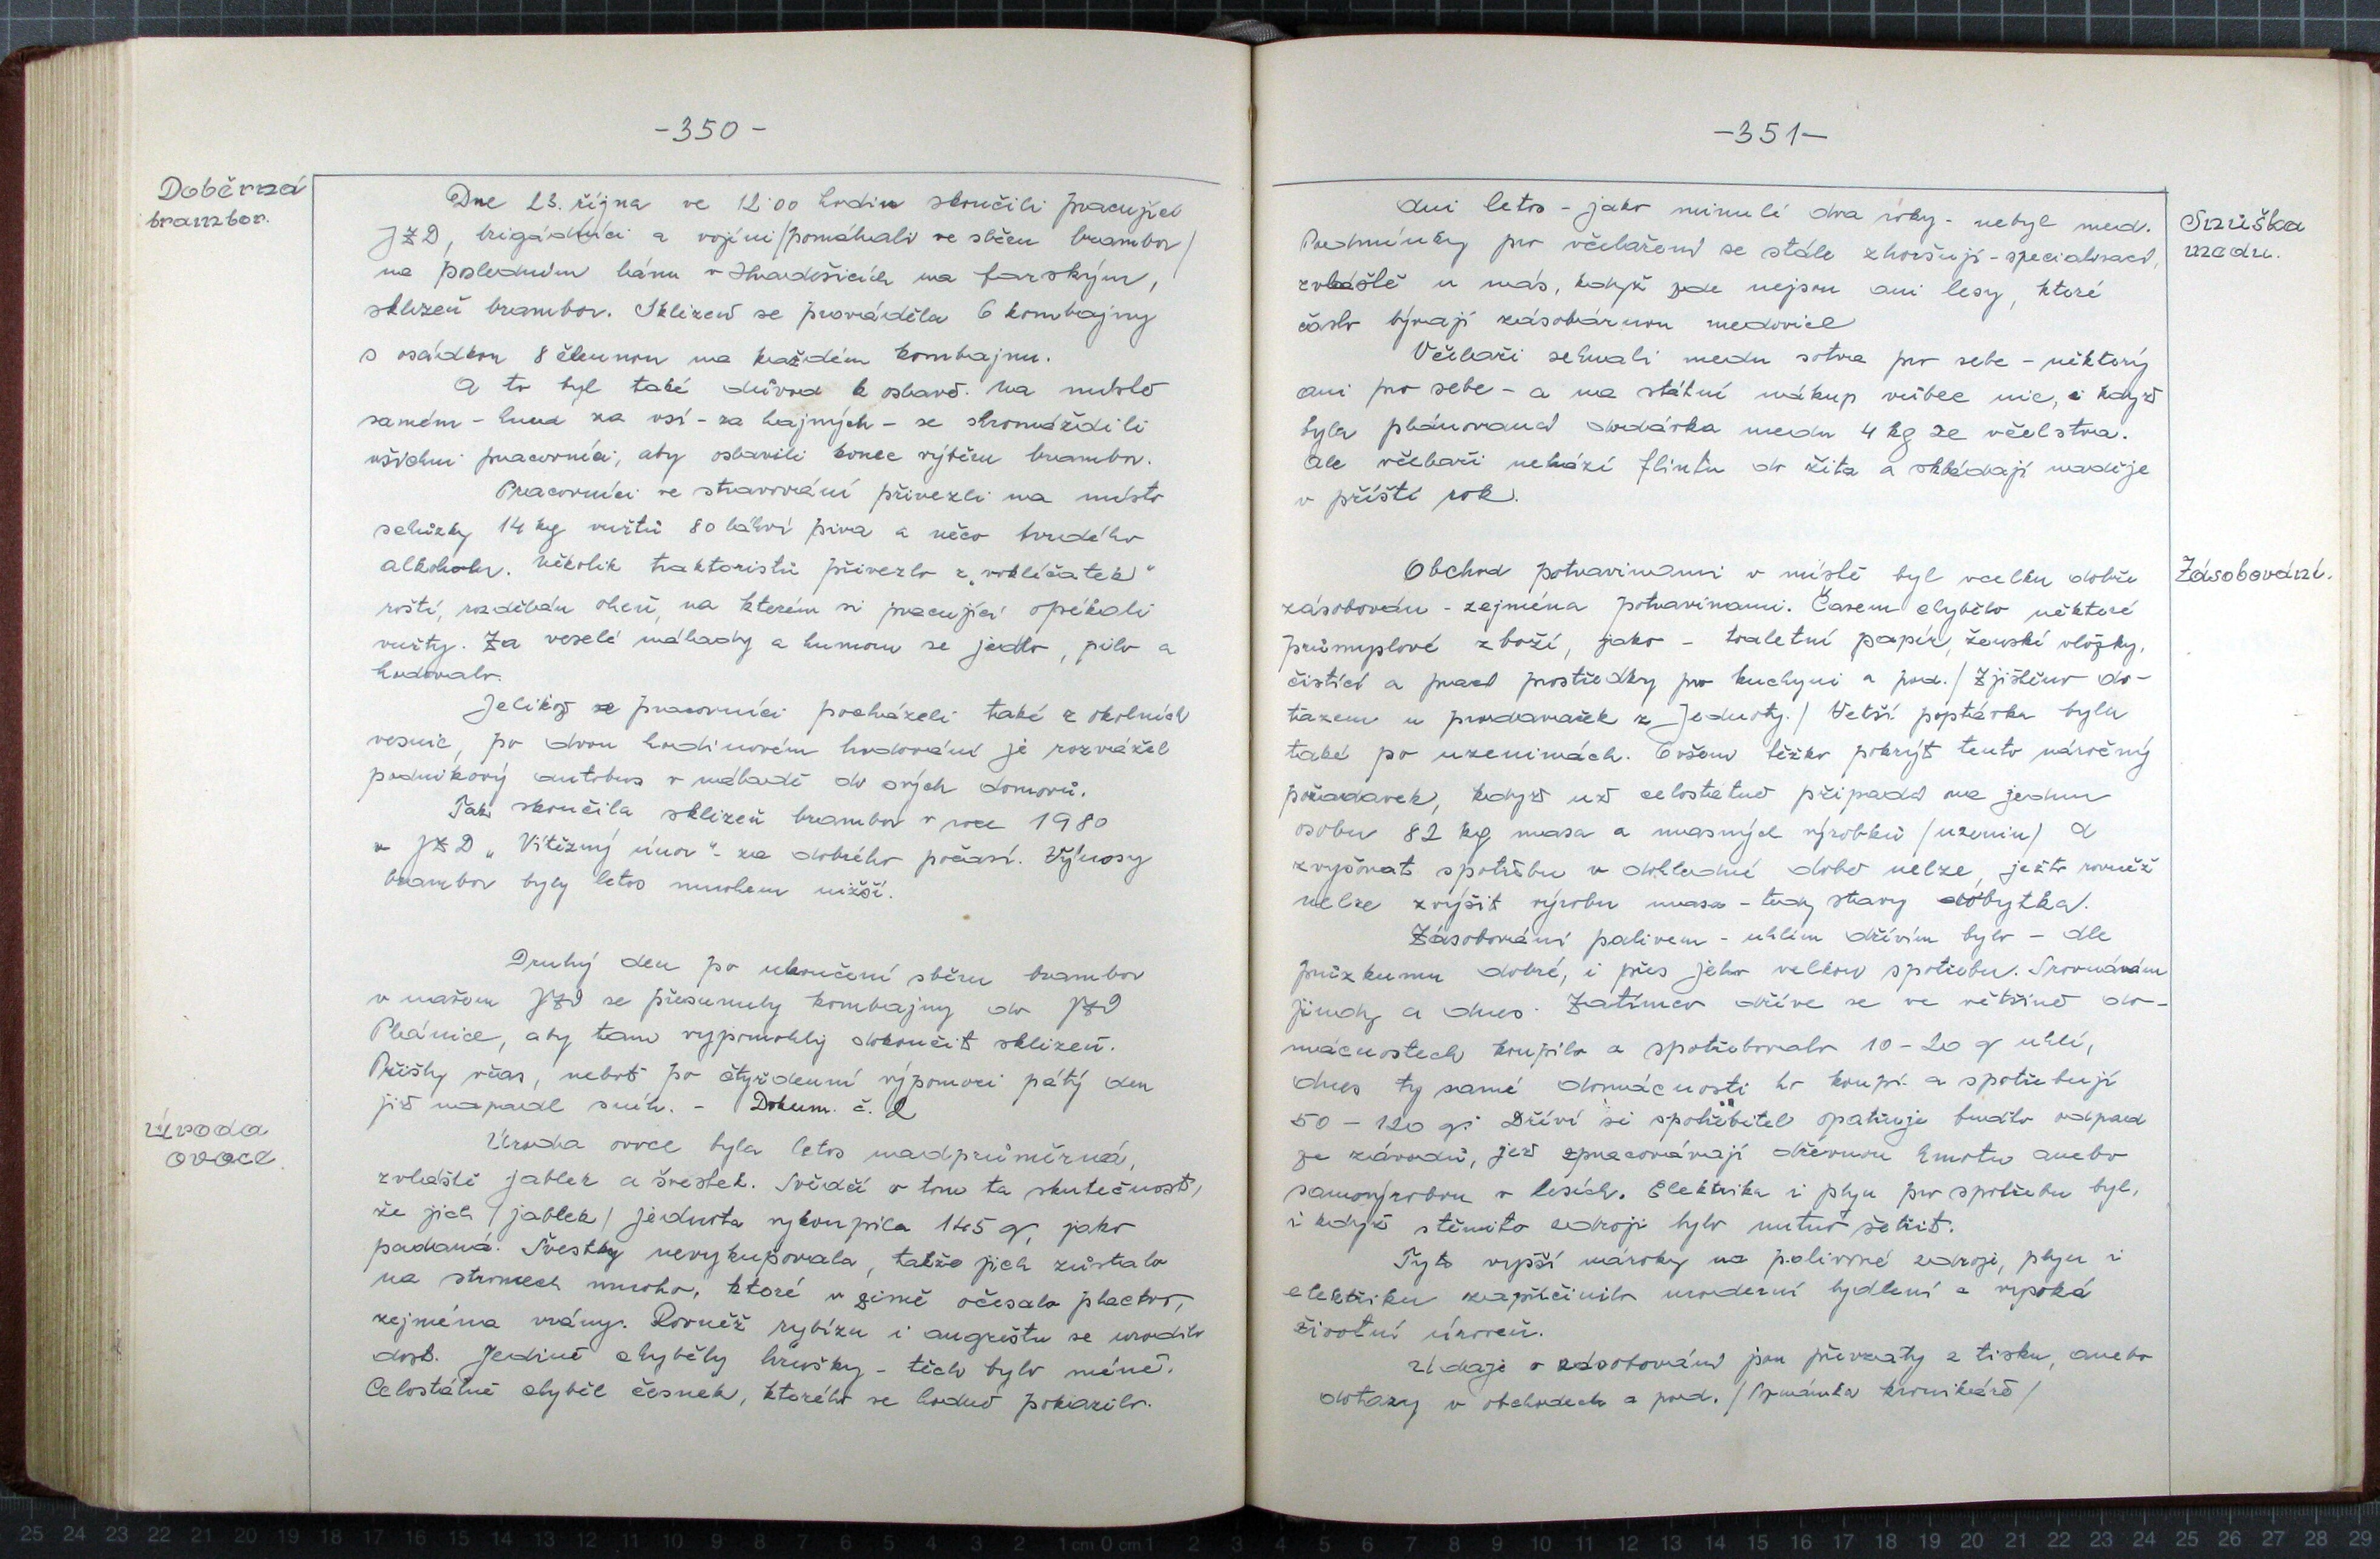 -350-
Doběrná
brambor.
Dne 23. října ve 12.00 hodin skončili pracující
JZD, brigádníci a vojíni /pomáhali ve sběru brambor/
na posledním lánu v Hradešicích na farským,
sklizeň brambor. Sklizeň se prováděla 6 kombajny
s osádkou 8 člennou na každém kombajnu.
A to byl také důvod k oslavě. Na místě
samém - hned za vsí - za hájných - se shromáždili
všichni pracovníci, aby oslavili konec výběru brambor.
Pracovníci ve stravování přivezli na místo
schůzky 14 kg vuřtů 80 láhví piva a něco tvrdého
alkoholu. Několik traktoristů přivezlo z "roklíčatek"
roští, rozdělán oheň, na kterém si pracující opékali
vuřty. Za veselé nálady a humoru se jedlo, pilo a
hodovalo.
Jelikož se pracovníci pocházeli také z okolních
vesnic, po dvou hodinovém hodování je rozvážel
podnikový autobus v náladě do svých domovů.
Tak skončila sklizeň brambor v roce 1980
v JZD "Vítězný únor" - za dobrého počasí. Výnosy
brambor byly letos mnohem nižší.
Druhý den po ukončení sběru brambor
v našem JZD se přesunuly kombajny do JZD
Plánice, aby tam vypomohly dokončit sklizeň.
Přišly včas, neboť po čtyřdenní výpomoci pátý den
již napadl sníh. - Dokum. č. 2
Úroda
ovoce
Úroda ovoce byla letos nadprůměrná,
zvláště jablek a švestek. Svědčí o tom ta skutečnost,
že jich /jablek/ Jednota vykoupila 145 q, jako
padaná. Švestky nevykupovala, takže jich zůstalo
na stromech mnoho, které v zimě očesalo ptactvo,
zejména vrány. Rovněž rybízu i angreštu se urodilo
dost. Jedině chyběly hrušky - těch bylo méně.
Celostátně chyběl česnek, kterého se hodně pokazilo.
-351-
Snůška
medu.
Ani letos - jako minulé dva roky - nebyl med.
Podmínky pro včelaření se stále zhoršují - specialisací,
zvláště u nás, když zde nejsou ani lesy, které
často bývají zásobárnou medovice
Včelaři sehnali medu sotva pro sebe - některý
ani pro sebe - a na státní nákup vůbec nic, i když
byla plánovaná dodávka medu 4 kg ze včelstva.
Ale včelaři nehází flintu do žita a skládají naděje
v příští rok.
Zásobování.
Obchod potravinami v místě byl vcelku dobře
zásobován - zejména potravinami. Časem chybělo některé
průmyslové zboží, jako - toaletní papír, ženské vložky,
čistící a prací prostředky pro kuchyni a pod. /Zjištěno do-
tazem u prodavaček z Jednoty./ Větší poptávka byla
také po uzeninách. Ovšem těžko pokrýt tento náročný
požadavek, když už celostátně připadá na jednu
osobu 82 kg masa a masných výrobků /uzenin/ A
zvyšovat spotřebu v dohledné době nelze, ježto rovněž
nelze zvýšit výrobu masa - tedy stavy dobytka.
Zásobování palivem - uhlím dřívím bylo - dle
průzkumu dobré, i přes jeho velkou spotřebu. Srovnávám
jindy a dnes. Zatímco dříve se ve většině do-
mácnostech koupilo a spotřebovalo 10 - 20 q uhlí,
dnes ty samé domácnosti ho koupí a spotřebují
50 - 120 q. Dříví si spotřebitel opatřuje buďto odpad
ze závodů, jež zpracovávají dřevnou hmotu anebo
samovýrobou v lesích. Elektrika i plyn pro spotřebu byl,
i když s těmito zdroji bylo nutno šetřit.
Tyto vyšší nároky na palivové zdroje, plyn i
elektriku zapříčinilo moderní bydlení a vysoká
životní úroveň.
Údaje o zásobování jsou převzaty z tisku, anebo
dotazy v obchodech a pod. /Poznámka kronikářo/